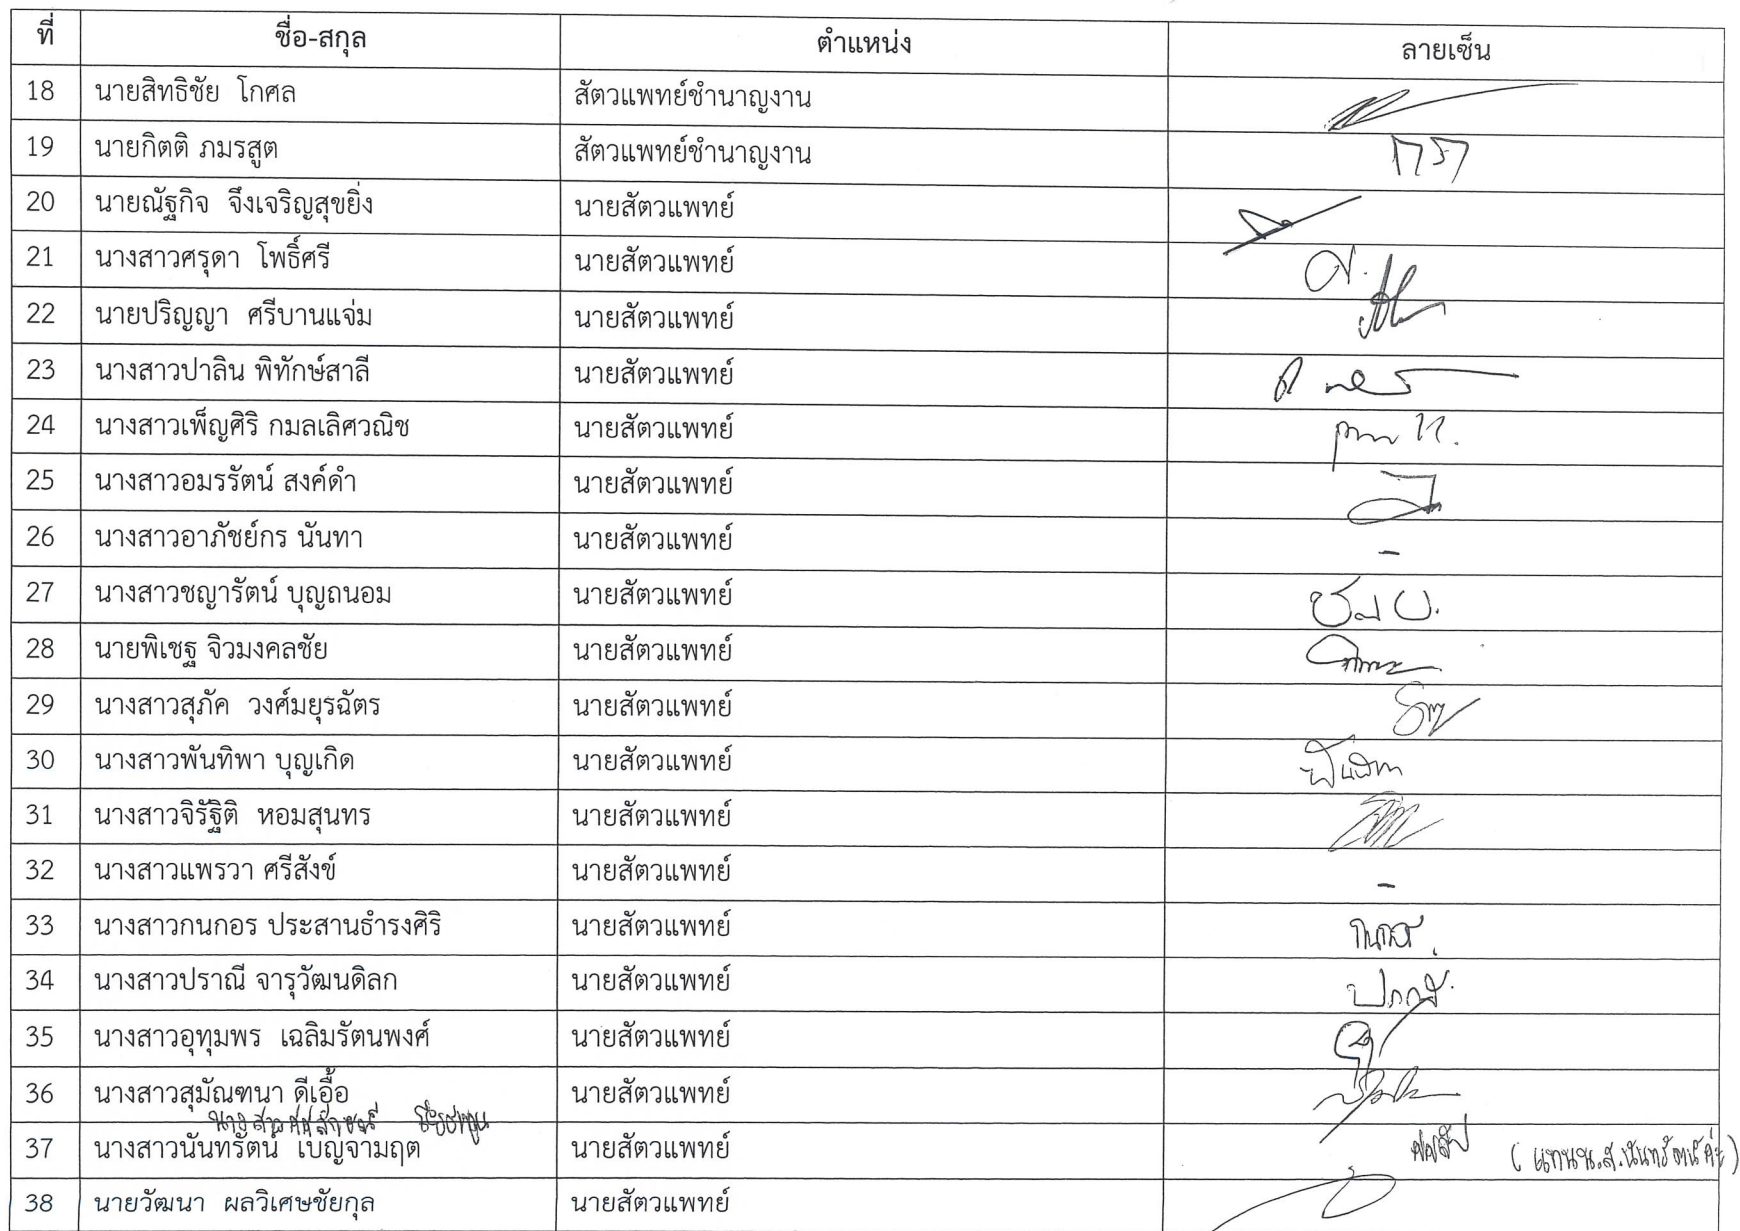 ที่ ชื่อ-สกุล ตำแหน่ง ลายเซ็น
18 นายสิทธิชัย โกศล สัตวแพทย์ชำนาญงาน
19 นายกิตติ ภมรสูต สัตวแพทย์ชำนาญงาน
20 นายณัฐกิจ จึงเจริญสุขยิ่ง นายสัตวแพทย์
21 นางสาวศรุดา โพธิ์ศรี นายสัตวแพทย์
22 นายปริญญา ศรีบานแจ่ม นายสัตวแพทย์
23 นางสาวปาลิน พิทักษ์สาลี นายสัตวแพทย์
24 นางสาวเพ็ญศิริ กมลเลิศวณิช นายสัตวแพทย์
25 นางสาวอมรรัตน์ สงค์ดำ นายสัตวแพทย์
26 นางสาวอาภัชย์กร นันทา นายสัตวแพทย์ -
27 นางสาวชญารัตน์ บุญถนอม นายสัตวแพทย์
28 นายพิเชฐ จิวมงคลชัย นายสัตวแพทย์
29 นางสาวสุภัค วงศ์มยุรฉัตร นายสัตวแพทย์
30 นางสาวพันทิพา บุญเกิด นายสัตวแพทย์
31 นางสาวจิรัฐิติ หอมสุนทร นายสัตวแพทย์
32 นางสาวแพรวา ศรีสังข์ นายสัตวแพทย์ -
33 นางสาวกนกอร ประสานธำรงศิริ นายสัตวแพทย์ กนกอร
34 นางสาวปราณี จารุวัฒนดิลก นายสัตวแพทย์ ปราณี
35 นางสาวอุทุมพร เฉลิมรัตนพงศ์ นายสัตวแพทย์
36 นางสาวสุมัณฑนา ดีเอื้อ นายสัตวแพทย์
นางสาว
37 นางสาวนันทรัตน์ เบญจามฤต นายสัตวแพทย์ (แทนน.ส.นันทรัตน์ค่ะ)
38 นายวัฒนา ผลวิเศษชัยกุล นายสัตวแพทย์